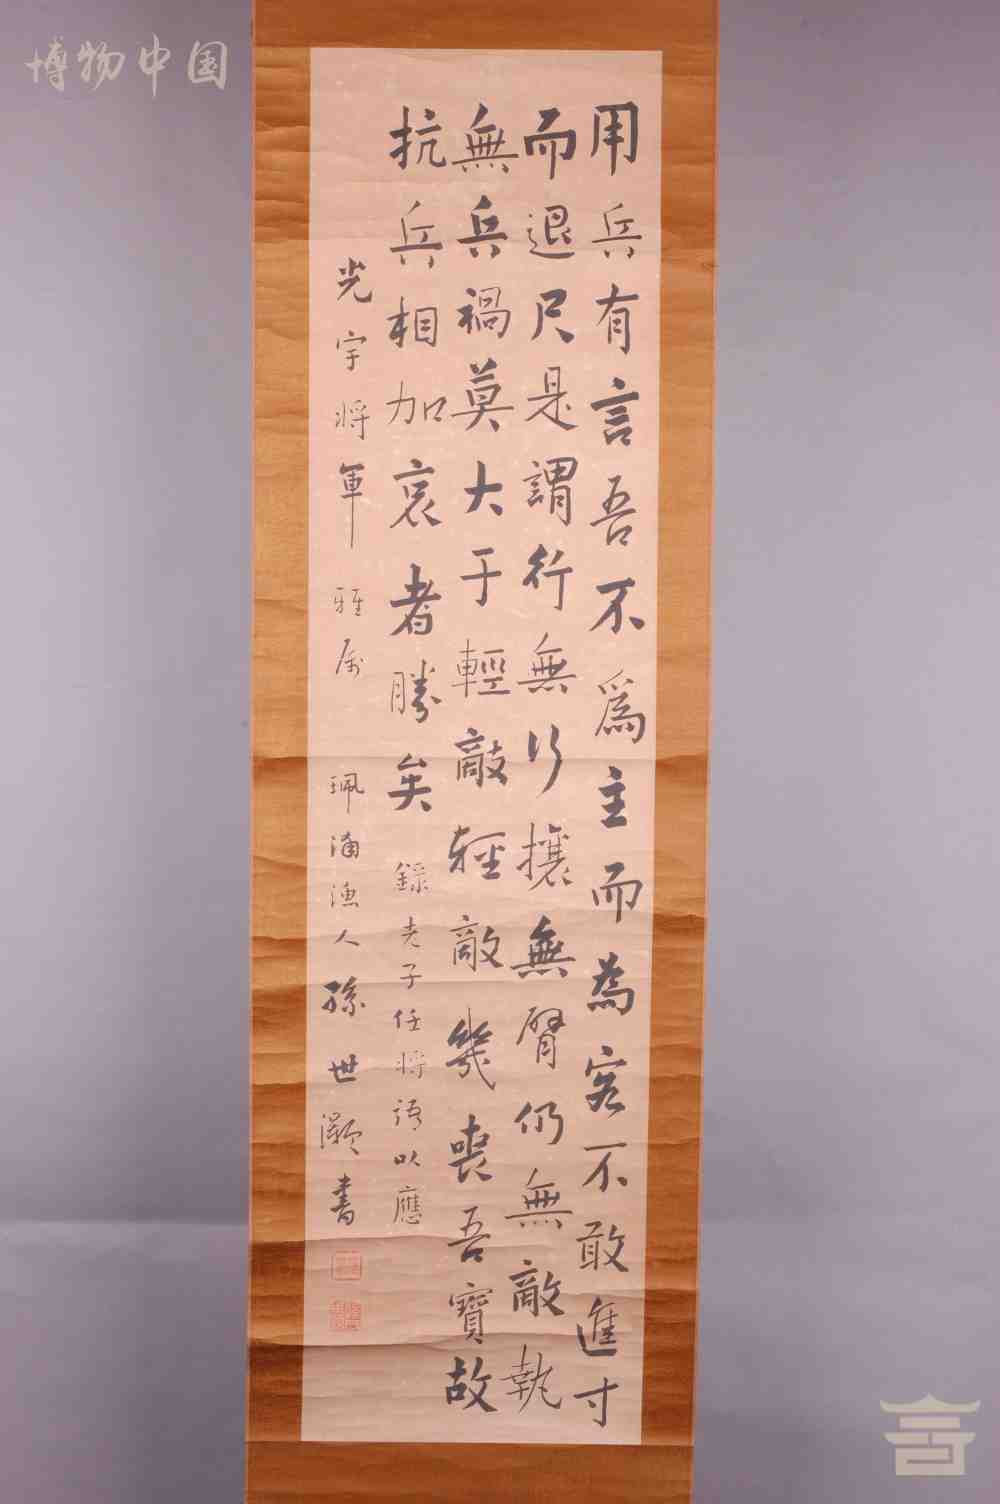 博物中国
用兵有言吾不為主而為客不敢進寸
而退尺是謂行無行攘無臂仍無敵執
無兵禍莫大于輕敵輕敵幾喪吾寶故
抗兵相加哀者勝矣
錄老子任將語以應
光宇將軍 雅屬
珮浦漁人孫世灝書